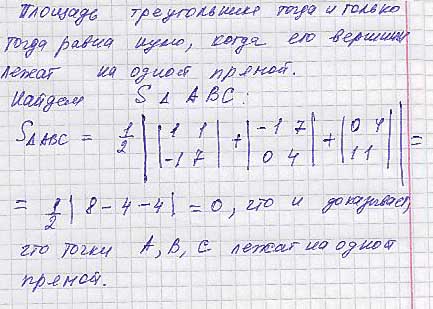 Площадь треугольника тогда и только
тогда равна нулю, когда его вершины
лежат на одной прямой.
Найдем S Δ ABC:
S_ΔABC = 1/2 | |1 1; -1 7| + |-1 7; 0 4| + |0 4; 1 1| | =
= 1/2 | 8 - 4 - 4 | = 0, что и доказывает,
что точки A, B, C лежат на одной
прямой.